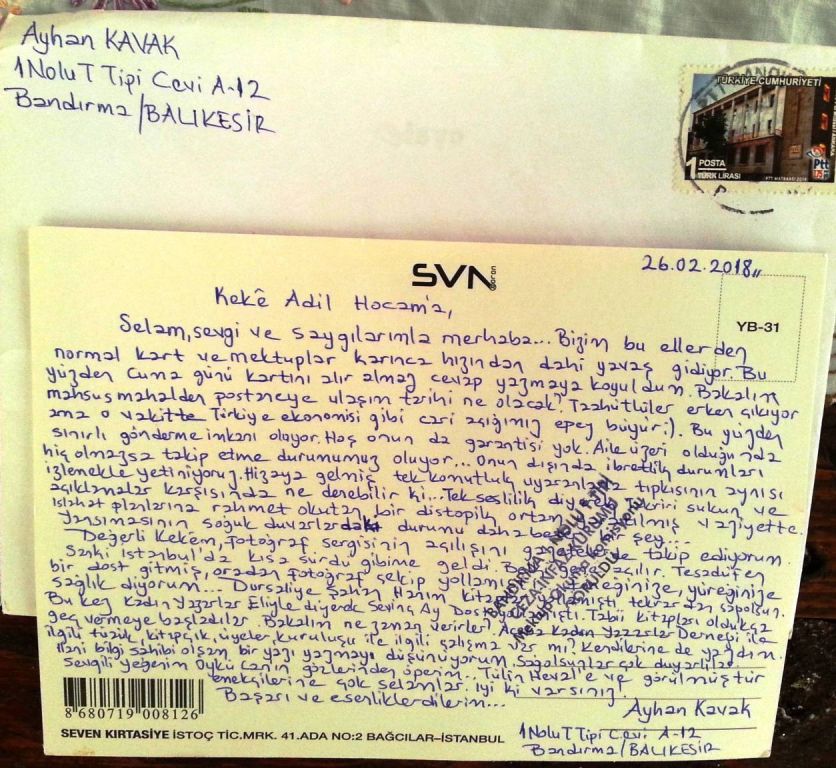 Ayhan KAVAK
1 Nolu T Tipi Cevi A-12
Bandırma/BALIKESİR
TÜRKİYE CUMHURİYETİ
1 POSTA
TÜRK LİRASI
Ptt
SVN
26.02.2018
YB-31
Kekê Adil Hocam'a,
Selam, sevgi ve saygılarımla merhaba... Bizim bu ellerden
normal kart ve mektuplar karınca hızından dahi yavaş gidiyor. Bu
yüzden Cuma günü kartını alır almaz cevap yazmaya koyuldum. Bakalım
mahsus mahalden postaneye ulaşım tarihi ne olacak? Taahütlüler erken çıkıyor
ama o vakitte Türkiye ekonomisi gibi cari açığımız epey büyür :). Bu yüzden
sınırlı gönderme imkanı oluyor. Hoş onun da garantisi yok. Aile üzeri olduğunda
hiç olmazsa takip etme durumumuz oluyor... Onun dışında ibretlik durumları
izlemekle yetiniyoruz. Hizaya gelmiş tek komutluk uyaranlara tıpkısının aynısı
açıklamalar karşısında ne denebilir ki... Tek seslilik sukun ve
ıslahat planlarına rahmet okutan bir distopik vaziyette.
yansımasının soğuk duvarlardaki durumu daha şey...
Değerli Kekem, fotoğraf sergisinin açılışını takip ediyorum.
Sanki İstanbul'da kısa sürdü gibime geldi. açılır. Tesadüfen
bir dost gitmiş, oradan fotoğraf çekip yollamış yüreğinize
sağlık diyorum... Dursaliye Şahan Hanım tekrardan sağolsun.
Bu kez Kadın Yazarlar Eliyle diyerek Sevinç Ay Dost Tabii kitapları oldukça
geç vermeye başladılar. Bakalım ne zaman verirler? Acaba Kadın Yazarlar Derneği ile
ilgili tüzük, kitapçık, üyeler, kuruluşu ile ilgili çalışma var mı? Kendilerine de yazdım.
Hani bilgi sahibi olsam bir yazı yazmayı düşünüyorum. Sağolsunlar çok duyarlılar.
Sevgili yeğenim Öykü Can'ın gözlerinden öperim... Tülin Heval'e ve görülmüştür
emekçilerine çok selamlar. İyi ki varsınız.
Başarı ve esenlikler dilerim...
Ayhan Kavak
1 Nolu T Tipi Cevi A-12
Bandırma/BALIKESİR
8 680719 008126
SEVEN KIRTASİYE İSTOÇ TİC.MRK. 41.ADA NO:2 BAĞCILAR–İSTANBUL